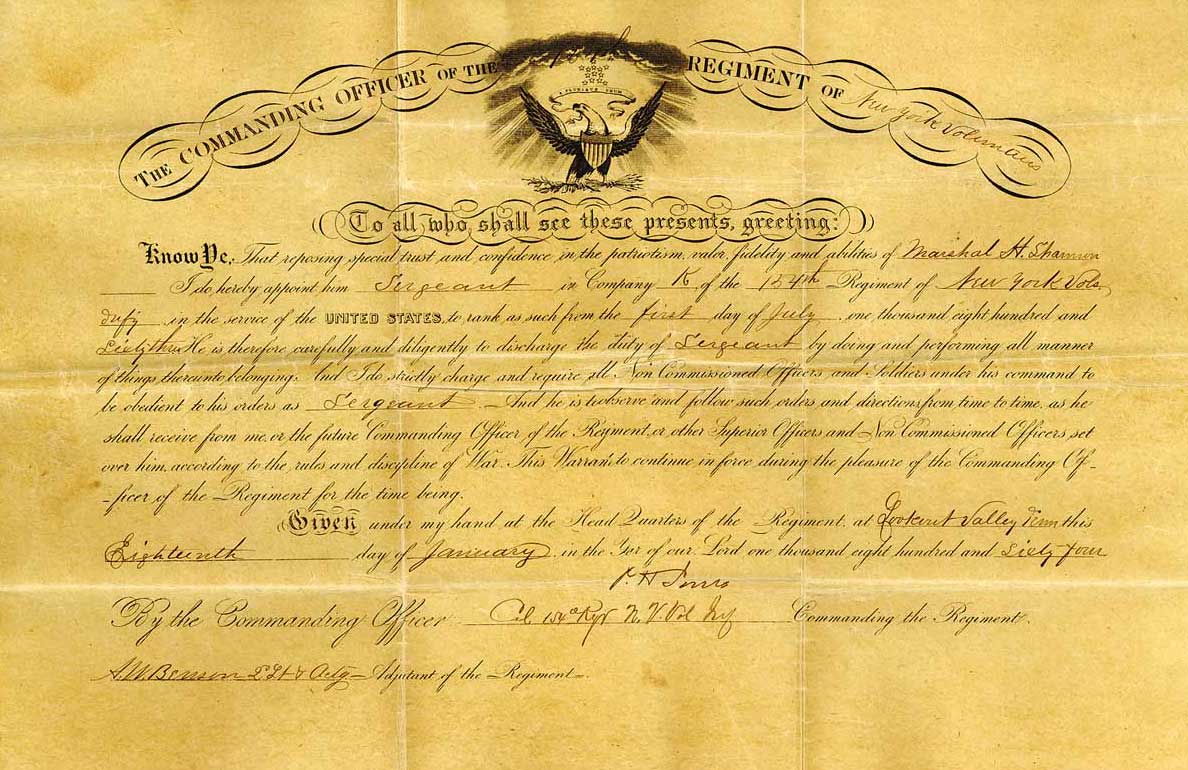 THE COMMANDING OFFICER OF THE REGIMENT OF New York Volunteers
E PLURIBUS UNUM
To all who shall see these presents, greeting:
Know Ye, That reposing special trust and confidence in the patriotism, valor, fidelity and abilities of Marshal H. Shannon
I do hereby appoint him Sergeant in Company K of the 154th Regiment of New York Vols
Infy in the service of the UNITED STATES, to rank as such from the first day of July one thousand eight hundred and
Sixty three He is therefore carefully and diligently to discharge the duty of Sergeant by doing and performing all manner
of things thereunto belonging. And I do strictly charge and require all Non Commissioned Officers and Soldiers under his command to
be obedient to his orders as Sergeant And he is to observe and follow such orders and directions from time to time, as he
shall receive from me, or the future Commanding Officer of the Regiment, or other Superior Officers and Non Commissioned Officers set
over him, according to the rules and discipline of War. This Warrant to continue in force during the pleasure of the Commanding Of-
-ficer of the Regiment for the time being.
Given under my hand at the Head Quarters of the Regiment, at Lookout Valley Tenn this
Eighteenth day of January in the Year of our Lord one thousand eight hundred and Sixty four
P. H. Jones
By the Commanding Officer Col 154th Regt N. Y. Vol Inf Commanding the Regiment.
A. W. Benson 2 Lt & Actg Adjutant of the Regiment.